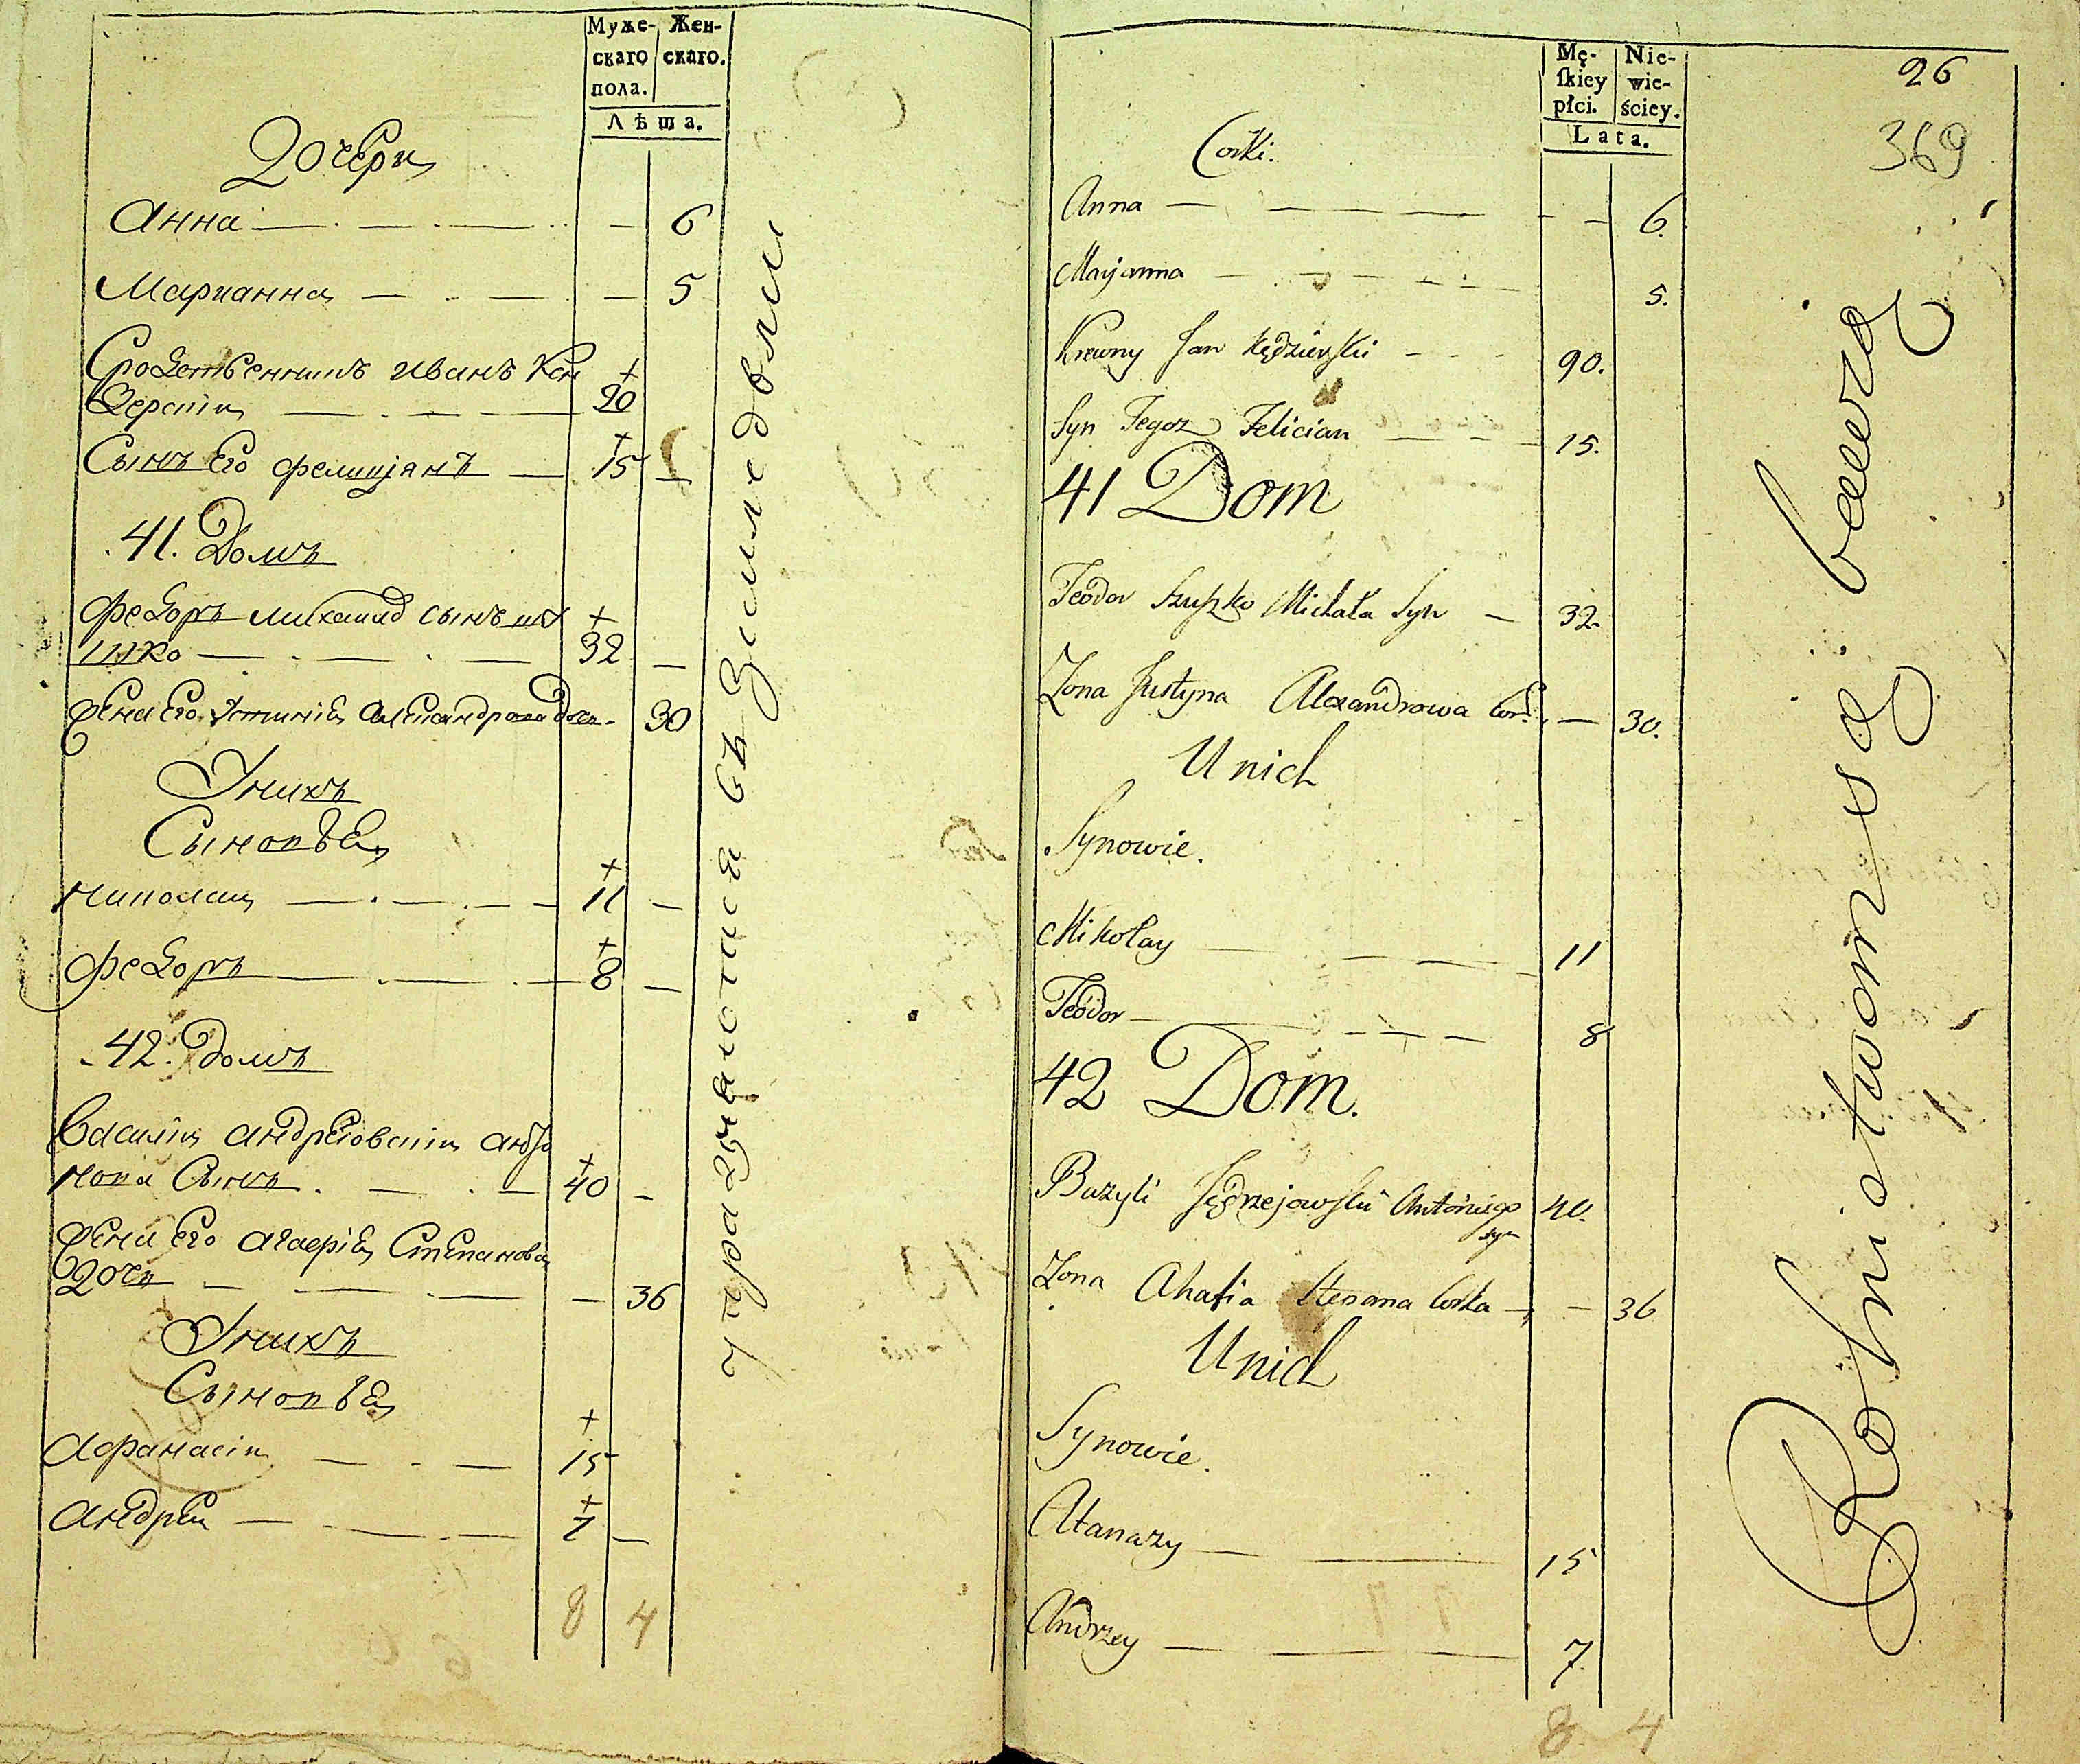 Муже- Жен-
скаго скаго.
пола.
Лѣта.
Дочери
Анна 6
Марианна 5
Сродственникъ Иванъ Кен
дерскiи 90
Сынъ Его Фелицiанъ 15
41. Домъ
Федоръ Михаила сынъ Шу
шко 32
Жена Его Устинiя Александрова дочь 30
У нихъ
Сыновья
Николаи 11
Федоръ 8
42. Домъ
Василiи Андреiовскiи Анто
нова Сынъ 40
Жена Его Агаерiя Степанова
Дочь 36
У нихъ
Сыновья
Афанасiи 15
Андреи 7
8 4
Mę- Nie-
ſkiey wie-
płci. ściey.
Lata.
26
369
Corki.
Anna 6.
Maryanna 5.
Krewny Jan Kędzierski 90.
Syn Tegoz Felician 15.
41 Dom
Teodor Szuszko Michała Syn 32.
Zona Justyna Alexandrowa Cor. 30.
U nich
Synowie.
Mikołay 11
Teodor 8
42 Dom.
Bazyli Jędrzejowski Antoniego 40.
syn
Zona Ahafia Stepana Corka 36
U nich
Synowie.
Atanazy 15
Andrzey 7.
8 4